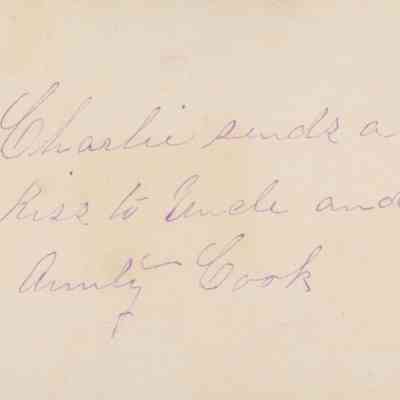 Charlie sends a
Kiss to Uncle and
Aunty Cook